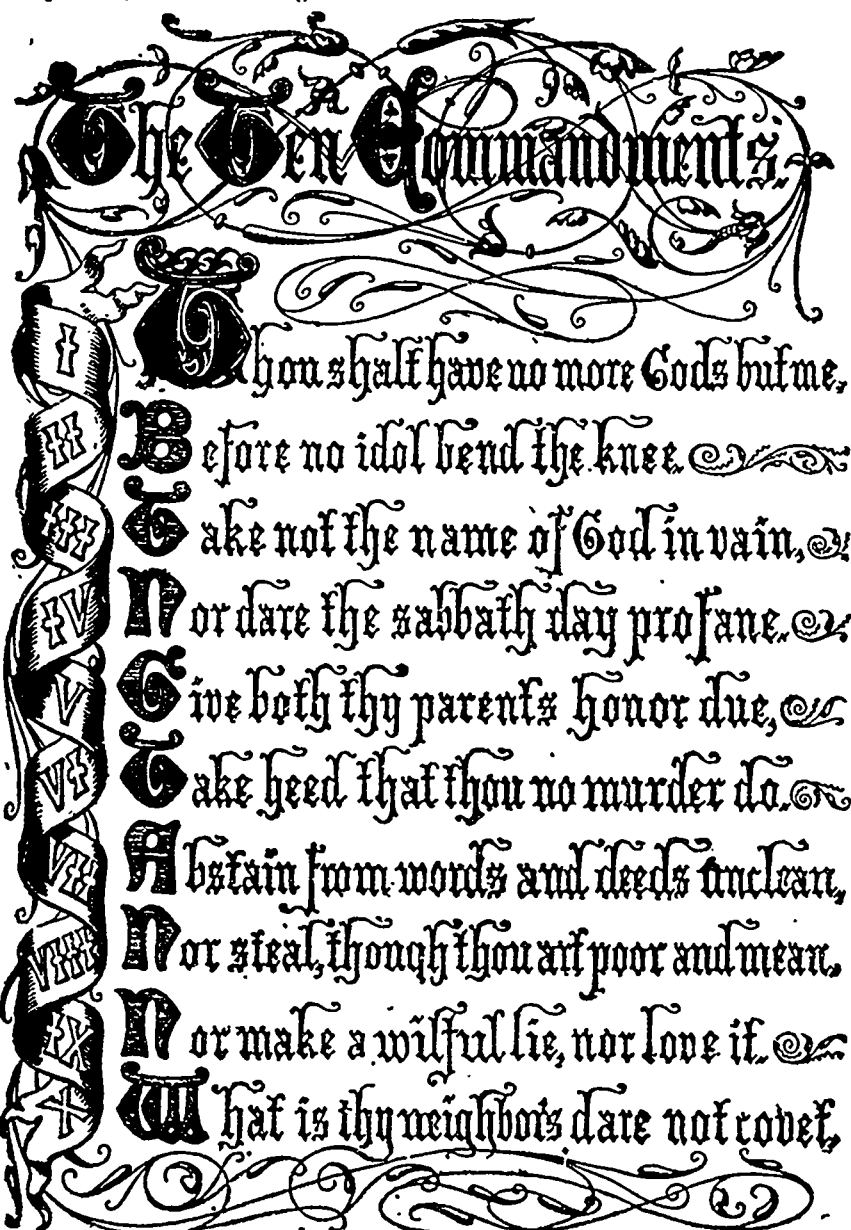 The Ten Commandments.
I Thou shalt have no more Gods but me,
II Before no idol bend the knee.
III Take not the name of God in vain,
IV Nor dare the sabbath day profane.
V Give both thy parents honor due,
VI Take heed that thou no murder do.
VII Abstain from words and deeds unclean,
VIII Nor steal, though thou art poor and mean,
IX Nor make a wilful lie, nor love it.
X What is thy neighbor's dare not covet.